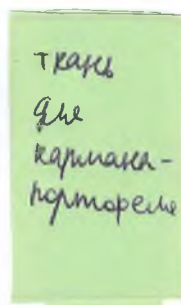 ткань
для
кармана-
портфеля